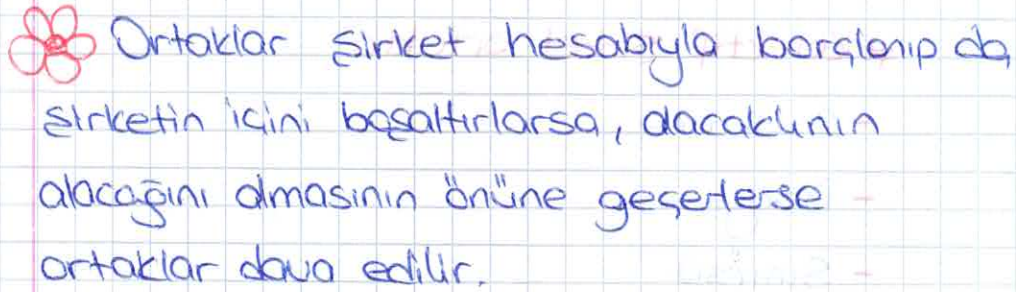 Ortaklar şirket hesabıyla borçlanıp da
şirketin içini boşaltırlarsa, alacaklının
alacağını almasının önüne geçerlerse
ortaklar dava edilir.